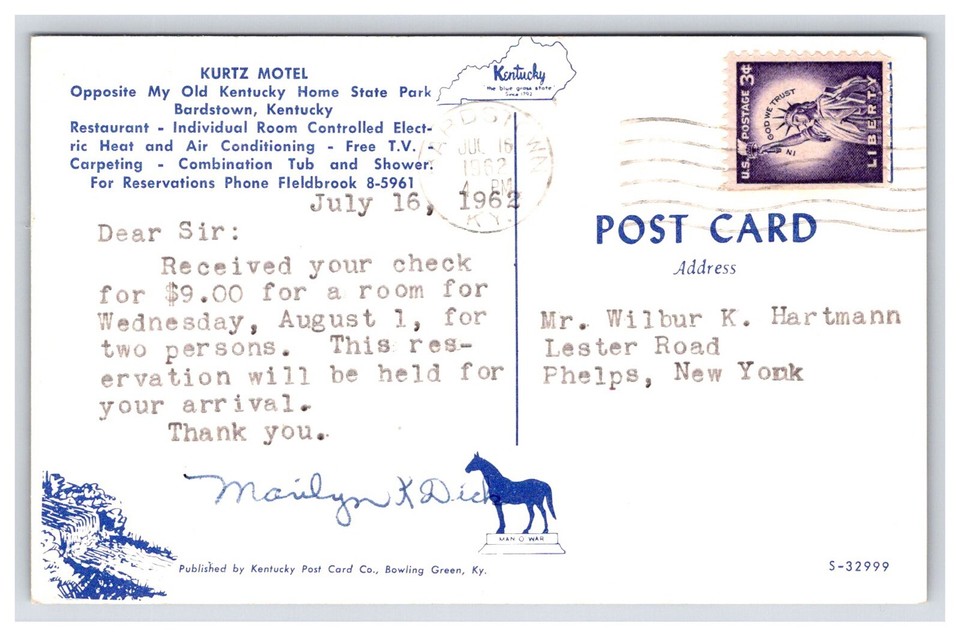 KURTZ MOTEL
Opposite My Old Kentucky Home State Park
Bardstown, Kentucky
Restaurant - Individual Room Controlled Elect-
ric Heat and Air Conditioning - Free T.V. -
Carpeting - Combination Tub and Shower.
For Reservations Phone FIeldbrook 8-5961
Kentucky
the blue grass state
Since 1792
JUL 16
1962
4 PM
KY.
U.S. POSTAGE 3¢
IN GOD WE TRUST
LIBERTY
July 16, 1962
Dear Sir:
Received your check
for $9.00 for a room for
Wednesday, August 1, for
two persons. This res-
ervation will be held for
your arrival.
Thank you.
Marilyn K Dick
POST CARD
Address
Mr. Wilbur K. Hartmann
Lester Road
Phelps, New Yonk
MAN O WAR
Published by Kentucky Post Card Co., Bowling Green, Ky.
S-32999